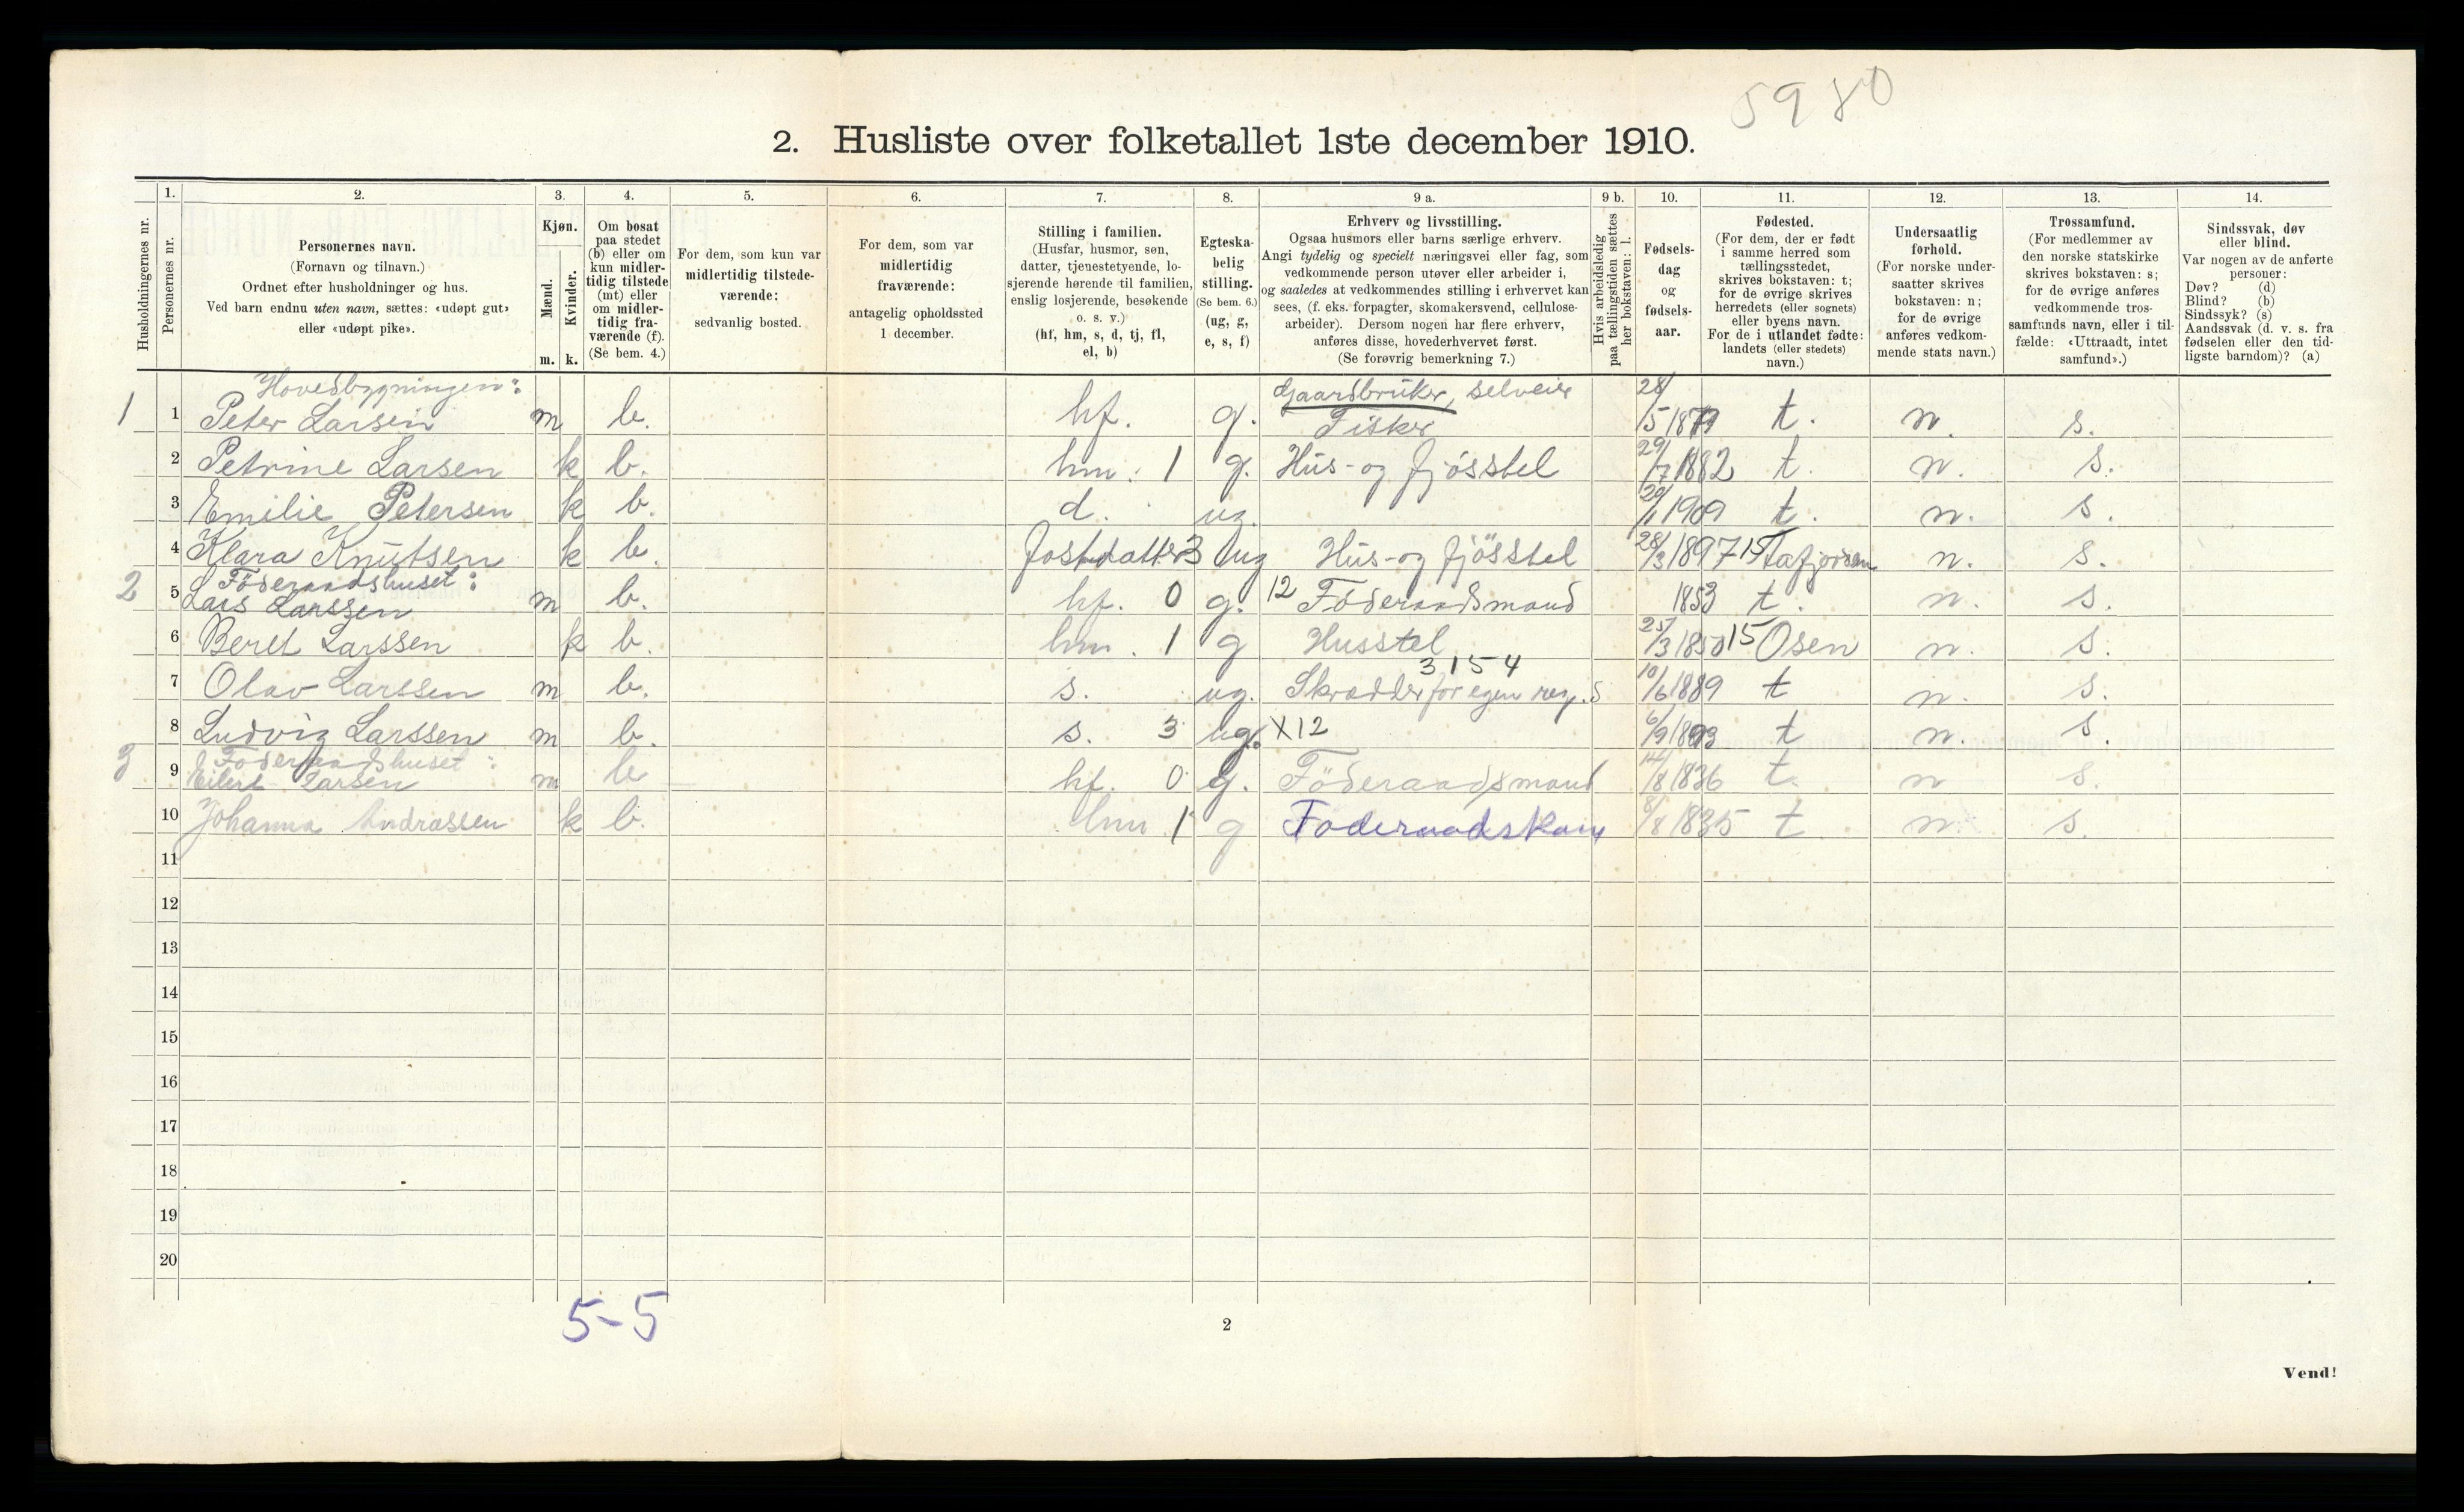 5980
2. Husliste over folketallet 1ste december 1910.
Husholdningernes nr.
1.
Personernes nr.
2.
Personernes navn.
(Fornavn og tilnavn.)
Ordnet efter husholdninger og hus.
Ved barn endnu uten navn, sættes: «udøpt gut»
eller «udøpt pike».
3.
Kjøn.
Mænd.
Kvinder.
m. k.
4.
Om bosat
paa stedet
(b) eller om
kun midler-
tidig tilstede
(mt) eller
om midler-
tidig fra-
værende (f).
(Se bem. 4.)
5.
For dem, som kun var
midlertidig tilstede-
værende:
sedvanlig bosted.
6.
For dem, som var
midlertidig
fraværende:
antagelig opholdssted
1 december.
7.
Stilling i familien.
(Husfar, husmor, søn,
datter, tjenestetyende, lo-
sjerende hørende til familien,
enslig losjerende, besøkende
o. s. v.)
(hf, hm, s, d, tj, fl,
el, b)
8.
Egteska-
belig
stilling.
(Se bem. 6.)
(ug, g,
e, s, f)
9 a.
Erhverv og livsstilling.
Ogsaa husmors eller barns særlige erhverv.
Angi tydelig og specielt næringsvei eller fag, som
vedkommende person utøver eller arbeider i,
og saaledes at vedkommendes stilling i erhvervet kan
sees, (f. eks. forpagter, skomakersvend, cellulose-
arbeider). Dersom nogen har flere erhverv,
anføres disse, hovederhvervet først.
(Se forøvrig bemerkning 7.)
9 b.
Hvis arbeidsledig
paa tællingstiden sættes
her bokstaven: l.
10.
Fødsels-
dag
og
fødsels-
aar.
11.
Fødested.
(For dem, der er født
i samme herred som
tællingsstedet,
skrives bokstaven: t;
for de øvrige skrives
herredets (eller sognets)
eller byens navn.
For de i utlandet fødte:
landets (eller stedets)
navn.)
12.
Undersaatlig
forhold.
(For norske under-
saatter skrives
bokstaven: n;
for de øvrige
anføres vedkom-
mende stats navn.)
13.
Trossamfund.
(For medlemmer av
den norske statskirke
skrives bokstaven: s;
for de øvrige anføres
vedkommende tros-
samfunds navn, eller i til-
fælde: «Uttraadt, intet
samfund».)
14.
Sindssvak, døv
eller blind.
Var nogen av de anførte
personer:
Døv? (d)
Blind? (b)
Sindssyk? (s)
Aandssvak (d. v. s. fra
fødselen eller den tid-
ligste barndom)? (a)
Hovedbygningen:
1 1 Peter Larsen m b. hf. g. Gaardbruker, selveier Fisker 28/5 18 t. n. s.
2 Petrine Larsen k b. hm. 1 g. Hus- og fjösstel 29/7 1882 t. n. s.
3 Emilie Petersen k b. d. ug. 20/1 1909 t. n. s.
4 Klara Knutsen k b. fostdatter 3 ug Hus- og fjösstel 28/3 1897 15 n. s.
Föderaadshuset:
2 5 Lars Larssen m b. hf. 0 g. 12 Föderaadsmand 1853 t. n. s.
6 Beret Larssen k b. hm. 1 g Husstel 25/3 1850 15 Osen n. s.
3154
7 Olav Larssen m b. s. ug. Skrædder for egen regn. s 10/6 1889 t n. s.
8 Ludvig Larssen m b. s. 3 ug. X12 6/9 1893 t n. s.
Föderaadshuset:
3 9 Eilert Larsen m b hf. 0 g. Föderaadsmand 14/8 1836 t. n s.
10 Johanna Andrassen k b. hm 1 g Foderaadskone 8/8 1835 t n. s.
11
12
13
14
15
16
17
18
19
20
5-5
2
Vend!